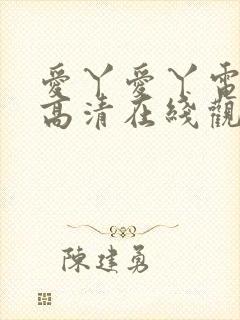 愛丫愛丫電
高清在綫觀
陳建勇